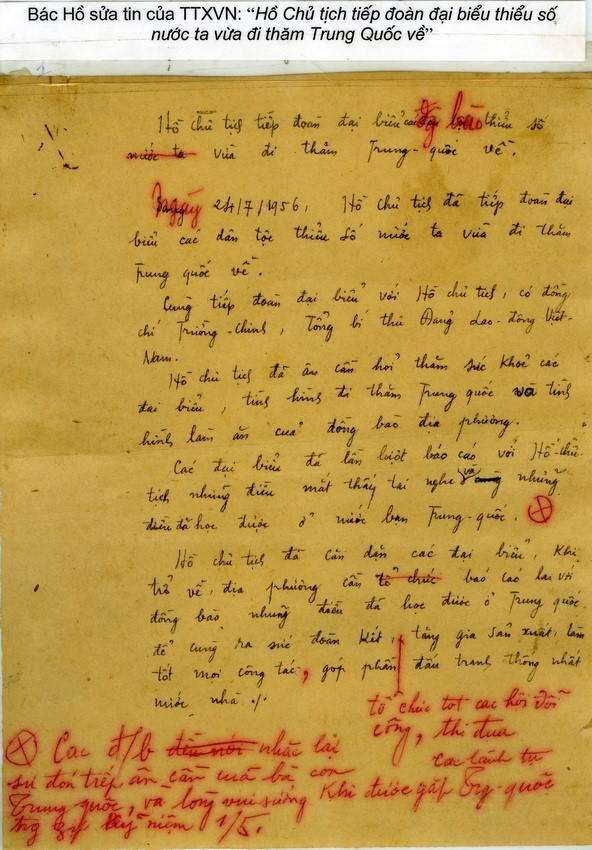 Bác Hồ sửa tin của TTXVN: “Hồ Chủ tịch tiếp đoàn đại biểu thiểu số
nước ta vừa đi thăm Trung Quốc về”
Hồ chủ tịch tiếp đoàn đại biểu đg bào thiểu số
nước ta vừa đi thăm Trung-quốc về.
Ngày 24/7/1956, Hồ chủ tịch đã tiếp đoàn đại
biểu các dân tộc thiểu số nước ta vừa đi thăm
Trung quốc về.
Cùng tiếp đoàn đại biểu với Hồ chủ tịch, có đồng
chí Trường-chinh, Tổng bí thư Đảng Lao-động Việt-
Nam.
Hồ chủ tịch đã ân cần hỏi thăm sức khoẻ các
đại biểu, tình hình đi thăm Trung quốc và tình
hình làm ăn của đồng bào địa phương.
Các đại biểu đã lần lượt báo cáo với Hồ-chủ-
tịch những điều mắt thấy tai nghe và những
điều đã học được ở nước bạn Trung-quốc. ⊗
Hồ chủ tịch đã căn dặn các đại biểu, khi
trở về, địa phương cần tổ chức báo cáo lại với
đồng bào những điều đã học được ở Trung quốc,
để cùng ra sức đoàn kết, tăng gia sản xuất, làm
tốt mọi công tác, góp phần đấu tranh thống nhất
nước nhà ./.
tổ chức tot cac hội đổi
công, thi đua
⊗ Cac đ/b nhắc lại
sự đón tiếp ân cần của bà con
Trung quốc, và lòng vui sướng khi được gặp cac lãnh tụ Trg-quốc
trg kỷ niệm 1/5.